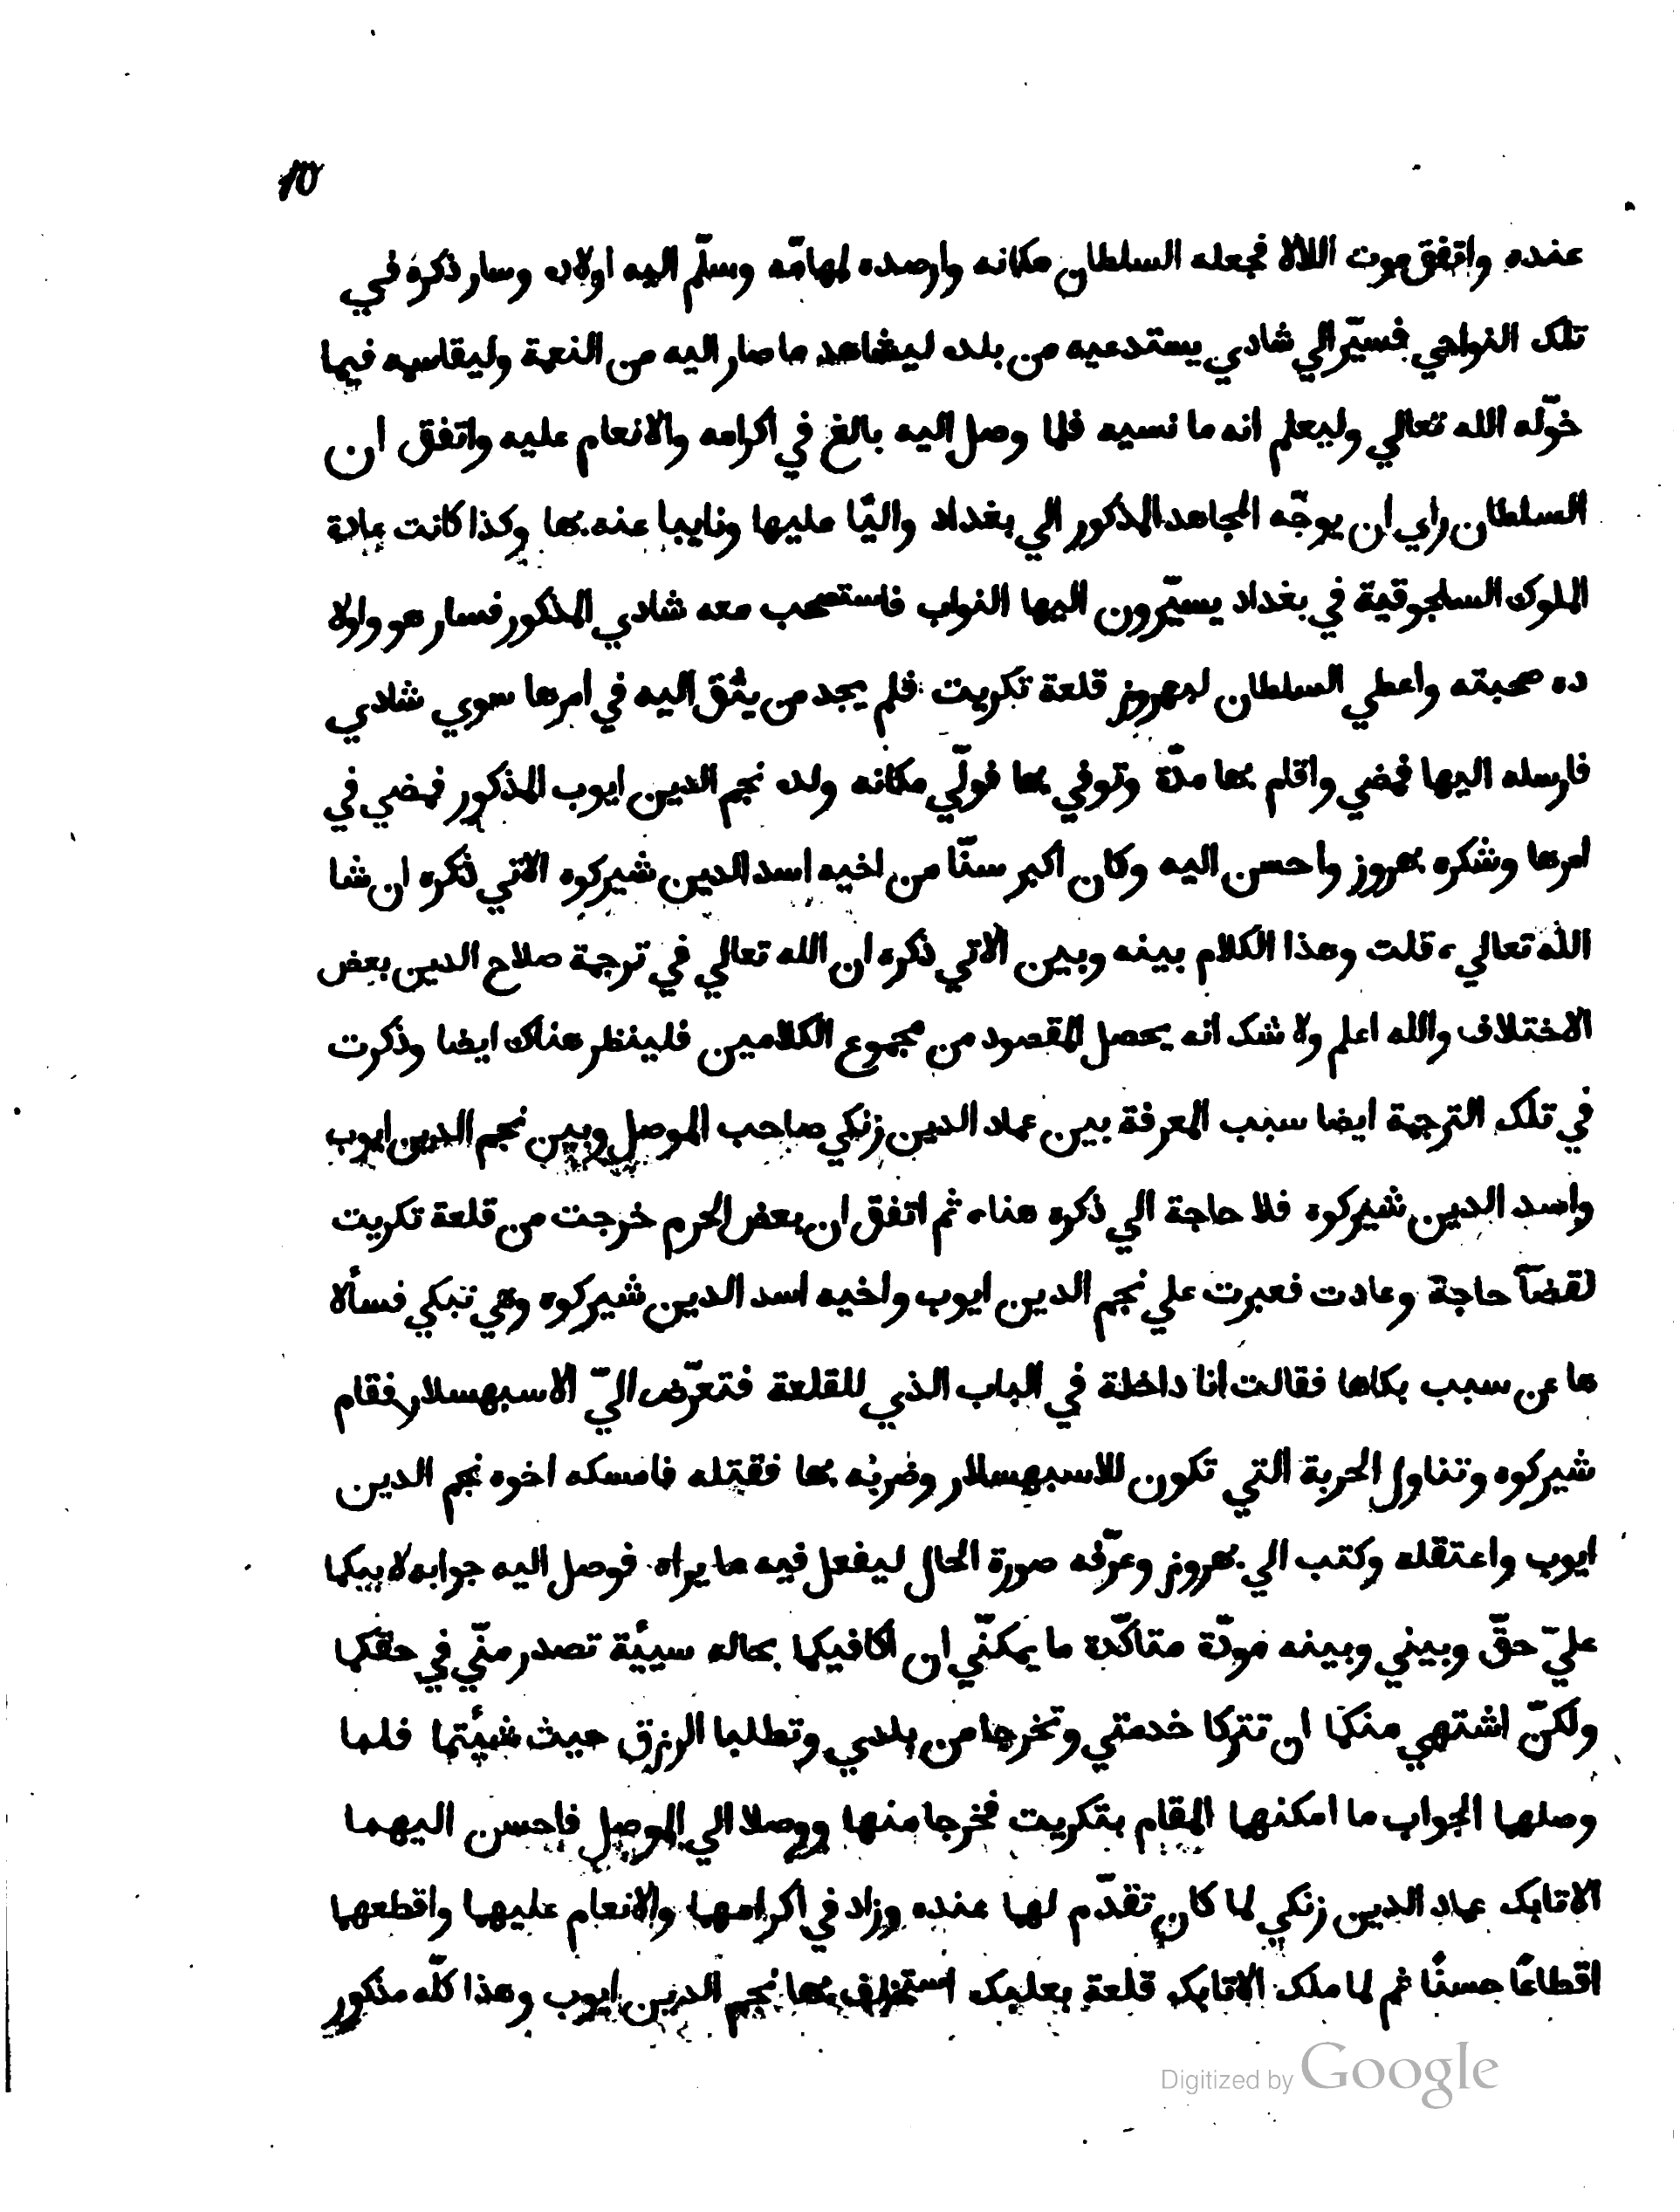 ١٥
عنده واتفق موت اللالا فجعله السلطان مكانه وارصده لمهامّه وسلّم اليه اولاده وسار ذكره في
تلك النواحي فسيّر الي شادي يستدعيه من بلده ليشاهد ما صار اليه من النعمة وليقاسمه فيما
خوّله الله تعالي وليعلم انه ما نسيه فلما وصل اليه بالغ في اكرامه والانعام عليه واتفق ان
السلطان راي ان يوجّه المجاهد المذكور الي بغداد واليًا عليها ونايبا عنه بها وكذا كانت عادة
الملوك السلجوقية في بغداد يسيّرون اليها النواب فاستصحب معه شادي المذكور فسار هو واولا
ده صحبته واعطي السلطان لبهروز قلعة تكريت فلم يجد من يثق اليه في امرها سوي شادي
فارسله اليها فمضي واقام بها مدّة وتوفي بها فولّي مكانه ولده نجم الدين ايوب المذكور فمضي في
امرها وشكره بهروز واحسن اليه وكان اكبر سنّا من اخيه اسد الدين شيركوه الاتي ذكره ان شا
الله تعالي، قلت وهذا الكلام بينه وبين الاتي ذكره ان الله تعالي في ترجمة صلاح الدين بعض
الاختلاف والله اعلم ولا شك انه يحصل المقصود من مجموع الكلامين فلينظر هناك ايضا وذكرت
في تلك الترجمة ايضا سبب المعرفة بين عماد الدين زنكي صاحب الموصل وبين نجم الدين ايوب
واسد الدين شيركوه فلا حاجة الي ذكره هنا، ثم اتفق ان بعض الحرم خرجت من قلعة تكريت
لقضآ حاجة وعادت فعبرت علي نجم الدين ايوب واخيه اسد الدين شيركوه وهي تبكي فسألا
ها عن سبب بكاها فقالت انا داخلة في الباب الذي للقلعة فتعرّض اليّ الاسبهسلار فقام
شيركوه وتناول الحربة التي تكون للاسبهسلار وضربه بها فقتله فامسكه اخوه نجم الدين
ايوب واعتقله وكتب الي بهروز وعرّفه صورة الحال ليفعل فيه ما يراه فوصل اليه جوابه لابيكما
عليّ حقّ وبيني وبينه مودّة متاكّدة ما يمكنّي ان اكافيكما بحاله سيئة تصدر منّي في حقكما
ولكنّ اشتهي منكما ان تتركا خدمتي وتخرجا من بلدي وتطلبا الرزق حيث شيئتما فلما
وصلهما الجواب ما امكنهما المقام بتكريت فخرجا منها ووصلا الي الموصل فاحسن اليهما
الاتابك عماد الدين زنكي لما كان تقدّم لهما عنده وزاد في اكرامهما والانعام عليهما واقطعهما
اقطاعًا حسنًا ثم لما ملك الاتابك قلعة بعلبك استخلف بها نجم الدين ايوب وهذا كلّه مذكور
Digitized by Google